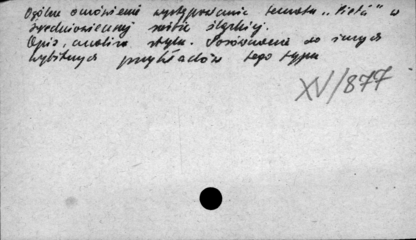 Ogólne omówienie występowania tematu „Pietà" w
średniowiecznej rzeźbie śląskiej.
Opis, analiza stylu. Porównanie do innych
wybitnych przykładów tego typu
XV/877